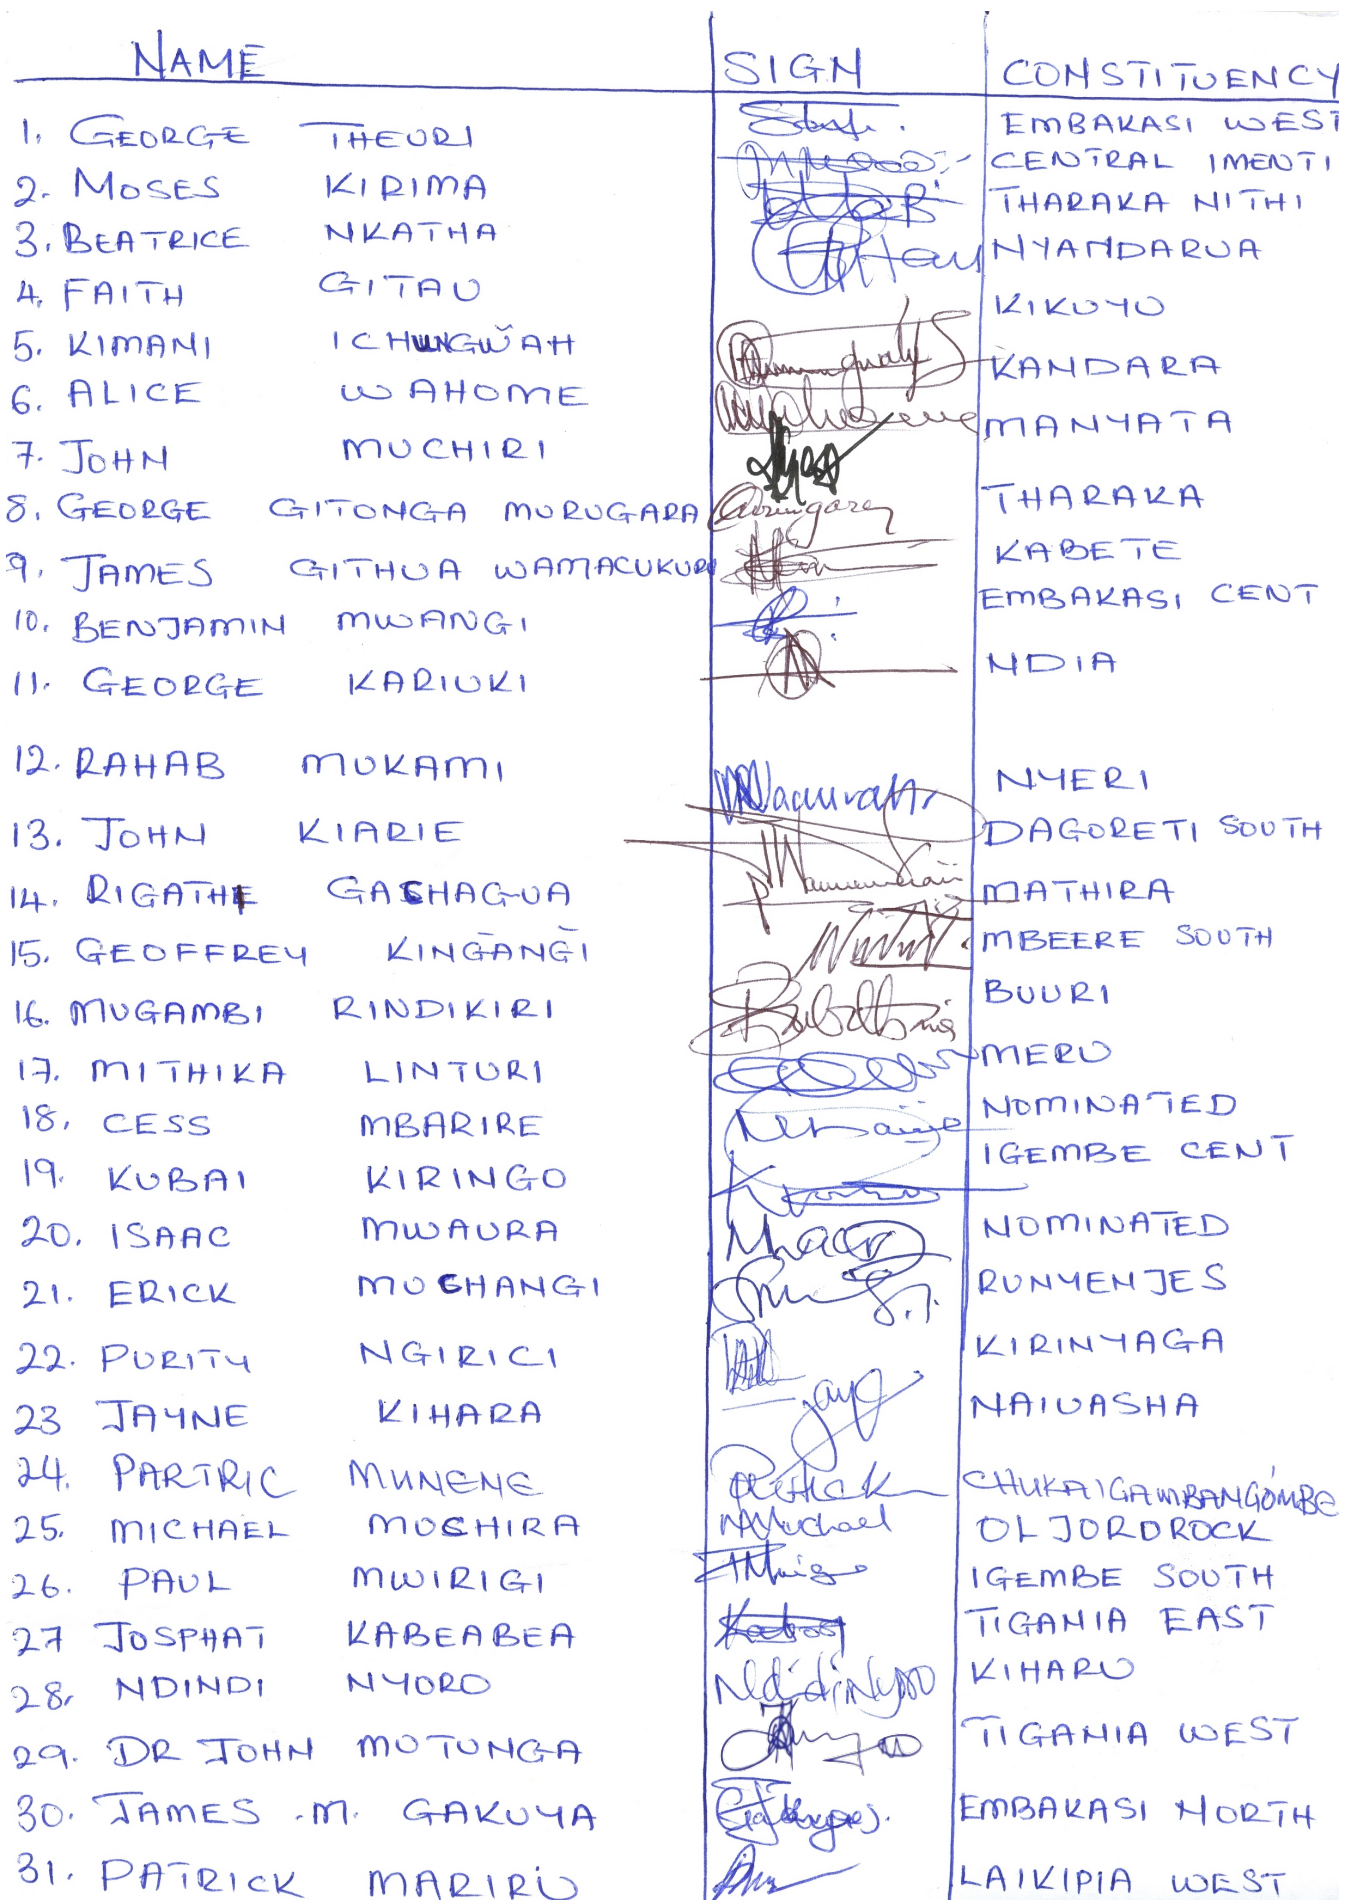 NAME SIGN CONSTITUENCY
1. GEORGE THEURI EMBAKASI WEST
2. MOSES KIRIMA CENTRAL IMENTI
3. BEATRICE NKATHA THARAKA NITHI
4. FAITH GITAU NYANDARUA
5. KIMANI ICHUNGWAH KIKUYU
6. ALICE WAHOME KANDARA
7. JOHN MUCHIRI MANYATA
8. GEORGE GITONGA MURUGARA THARAKA
9. JAMES GITHUA WAMACUKURU KABETE
10. BENJAMIN MWANGI EMBAKASI CENT
11. GEORGE KARIUKI NDIA
12. RAHAB MUKAMI NYERI
13. JOHN KIARIE DAGORETI SOUTH
14. RIGATHI GACHAGUA MATHIRA
15. GEOFFREY KINGANGI MBEERE SOUTH
16. MUGAMBI RINDIKIRI BUURI
17. MITHIKA LINTURI MERU
18. CESS MBARIRE NOMINATED
19. KUBAI KIRINGO IGEMBE CENT
20. ISAAC MWAURA NOMINATED
21. ERICK MUCHANGI RUNYENJES
22. PURITY NGIRICI KIRINYAGA
23 JAYNE KIHARA jayne NAIVASHA
24. PARTRIC MUNENE CHUKAIGAMBANGOMBE
25. MICHAEL MUCHIRA MMuchael OL JORDROCK
26. PAUL MWIRIGI IGEMBE SOUTH
27 JOSPHAT KABEABEA TIGANIA EAST
28. NDINDI NYORO NdindiNyoro KIHARU
29. DR JOHN MUTUNGA TIGANIA WEST
30. JAMES .M. GAKUYA EMBAKASI NORTH
31. PATRICK MARIRU LAIKIPIA WEST